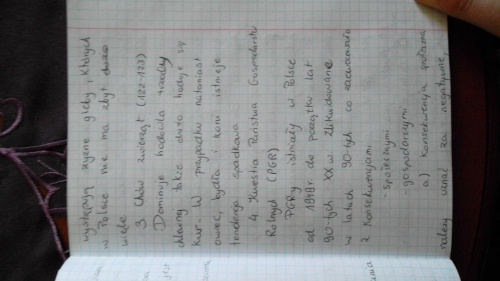 występują żyzne gleby i których
w Polsce nie ma zbyt dużo
wiele
3. Chów zwierząt (122-123)
Dominuje hodowla trzody
chlewnej, także dużo hoduje się
kur. W przypadku natomiast
owiec, bydła i koni istnieje
tendencja spadkowa
4. Kwestia Państwa Gospodarstw
Rolnych (PGR)
PGRy istniały w Polsce
od 1949r do początku lat
90-tych XX w. Zlikwidowane
w latach 90-tych co zaowocowało
2 konsekwencjami
- społecznymi
- gospodarczymi
a) konsekwencja społeczna
należy uznać za negatywne,